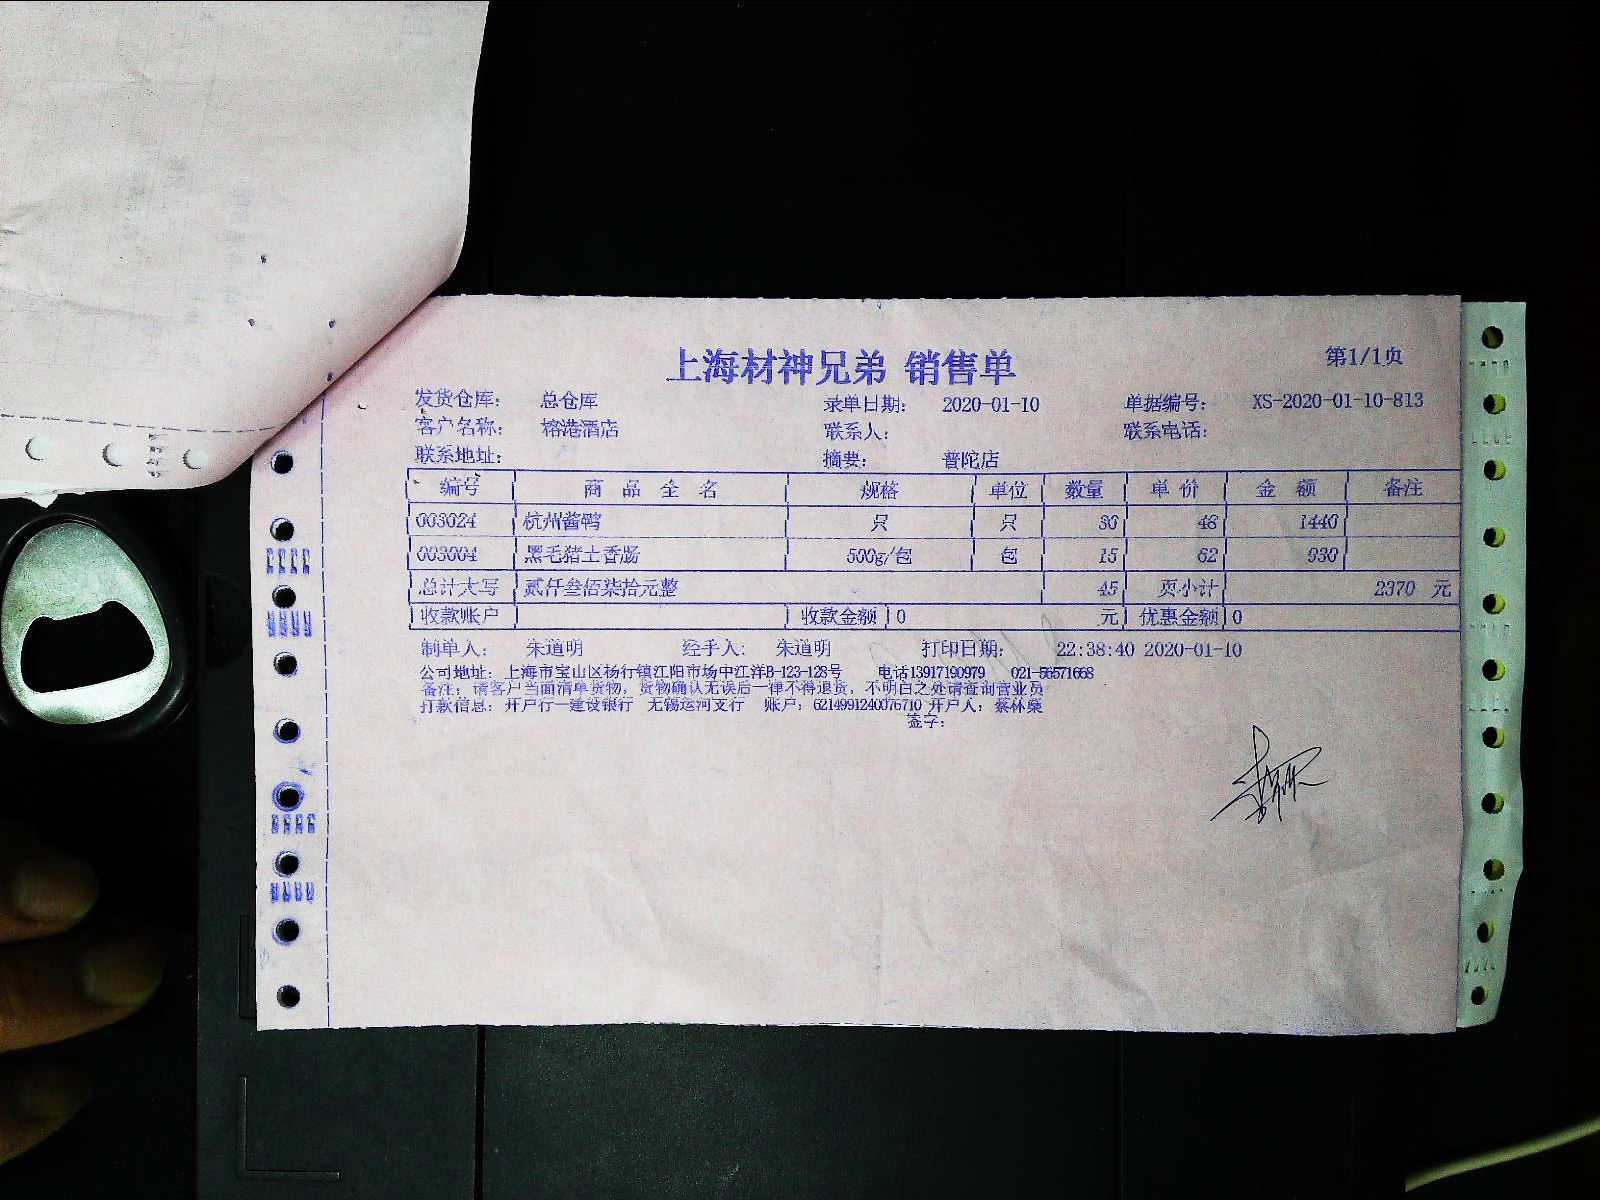 上海材神兄弟 销售单
第1/1页
发货仓库: 总仓库 录单日期: 2020-01-10 单据编号: XS-2020-01-10-813
客户名称: 榕港酒店 联系人: 联系电话:
联系地址: 摘要: 普陀店
编号 商品全名 规格 单位 数量 单价 金额 备注
003024 杭州酱鸭 只 只 30 48 1440
003004 黑毛猪土香肠 500g/包 包 15 62 930
总计大写 贰仟叁佰柒拾元整 45 页小计 2370 元
收款账户 收款金额 0 元 优惠金额 0
制单人: 朱道明 经手人: 朱道明 打印日期: 22:38:40 2020-01-10
公司地址: 上海市宝山区杨行镇江阳市场中江洋B-123-128号 电话13917190979 021-56571668
备注: 请客户当面清单货物, 货物确认无误后一律不得退货, 不明白之处请查询营业员
打款信息: 开户行—建设银行 无锡运河支行 账户: 6214991240076710 开户人: 蔡林燊
签字: